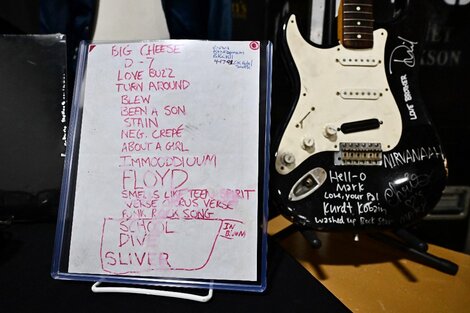 BIG CHEESE
D - 7
LOVE BUZZ
TURN AROUND
BLEW
BEEN A SON
STAIN
NEG. CREPE
ABOUT A GIRL
IMMOODDIUUM
FLOYD
SMELLS LIKE TEEN SPIRIT
VERSE CHORUS VERSE
PUNK ROCK SONG
SCHOOL
DIVE
SLIVER
IN
BLOOM
LOVE
NIRVANA
Hell-o
Mark
Love, your Pal
Kurdt Kobain
Washed up Rock Star